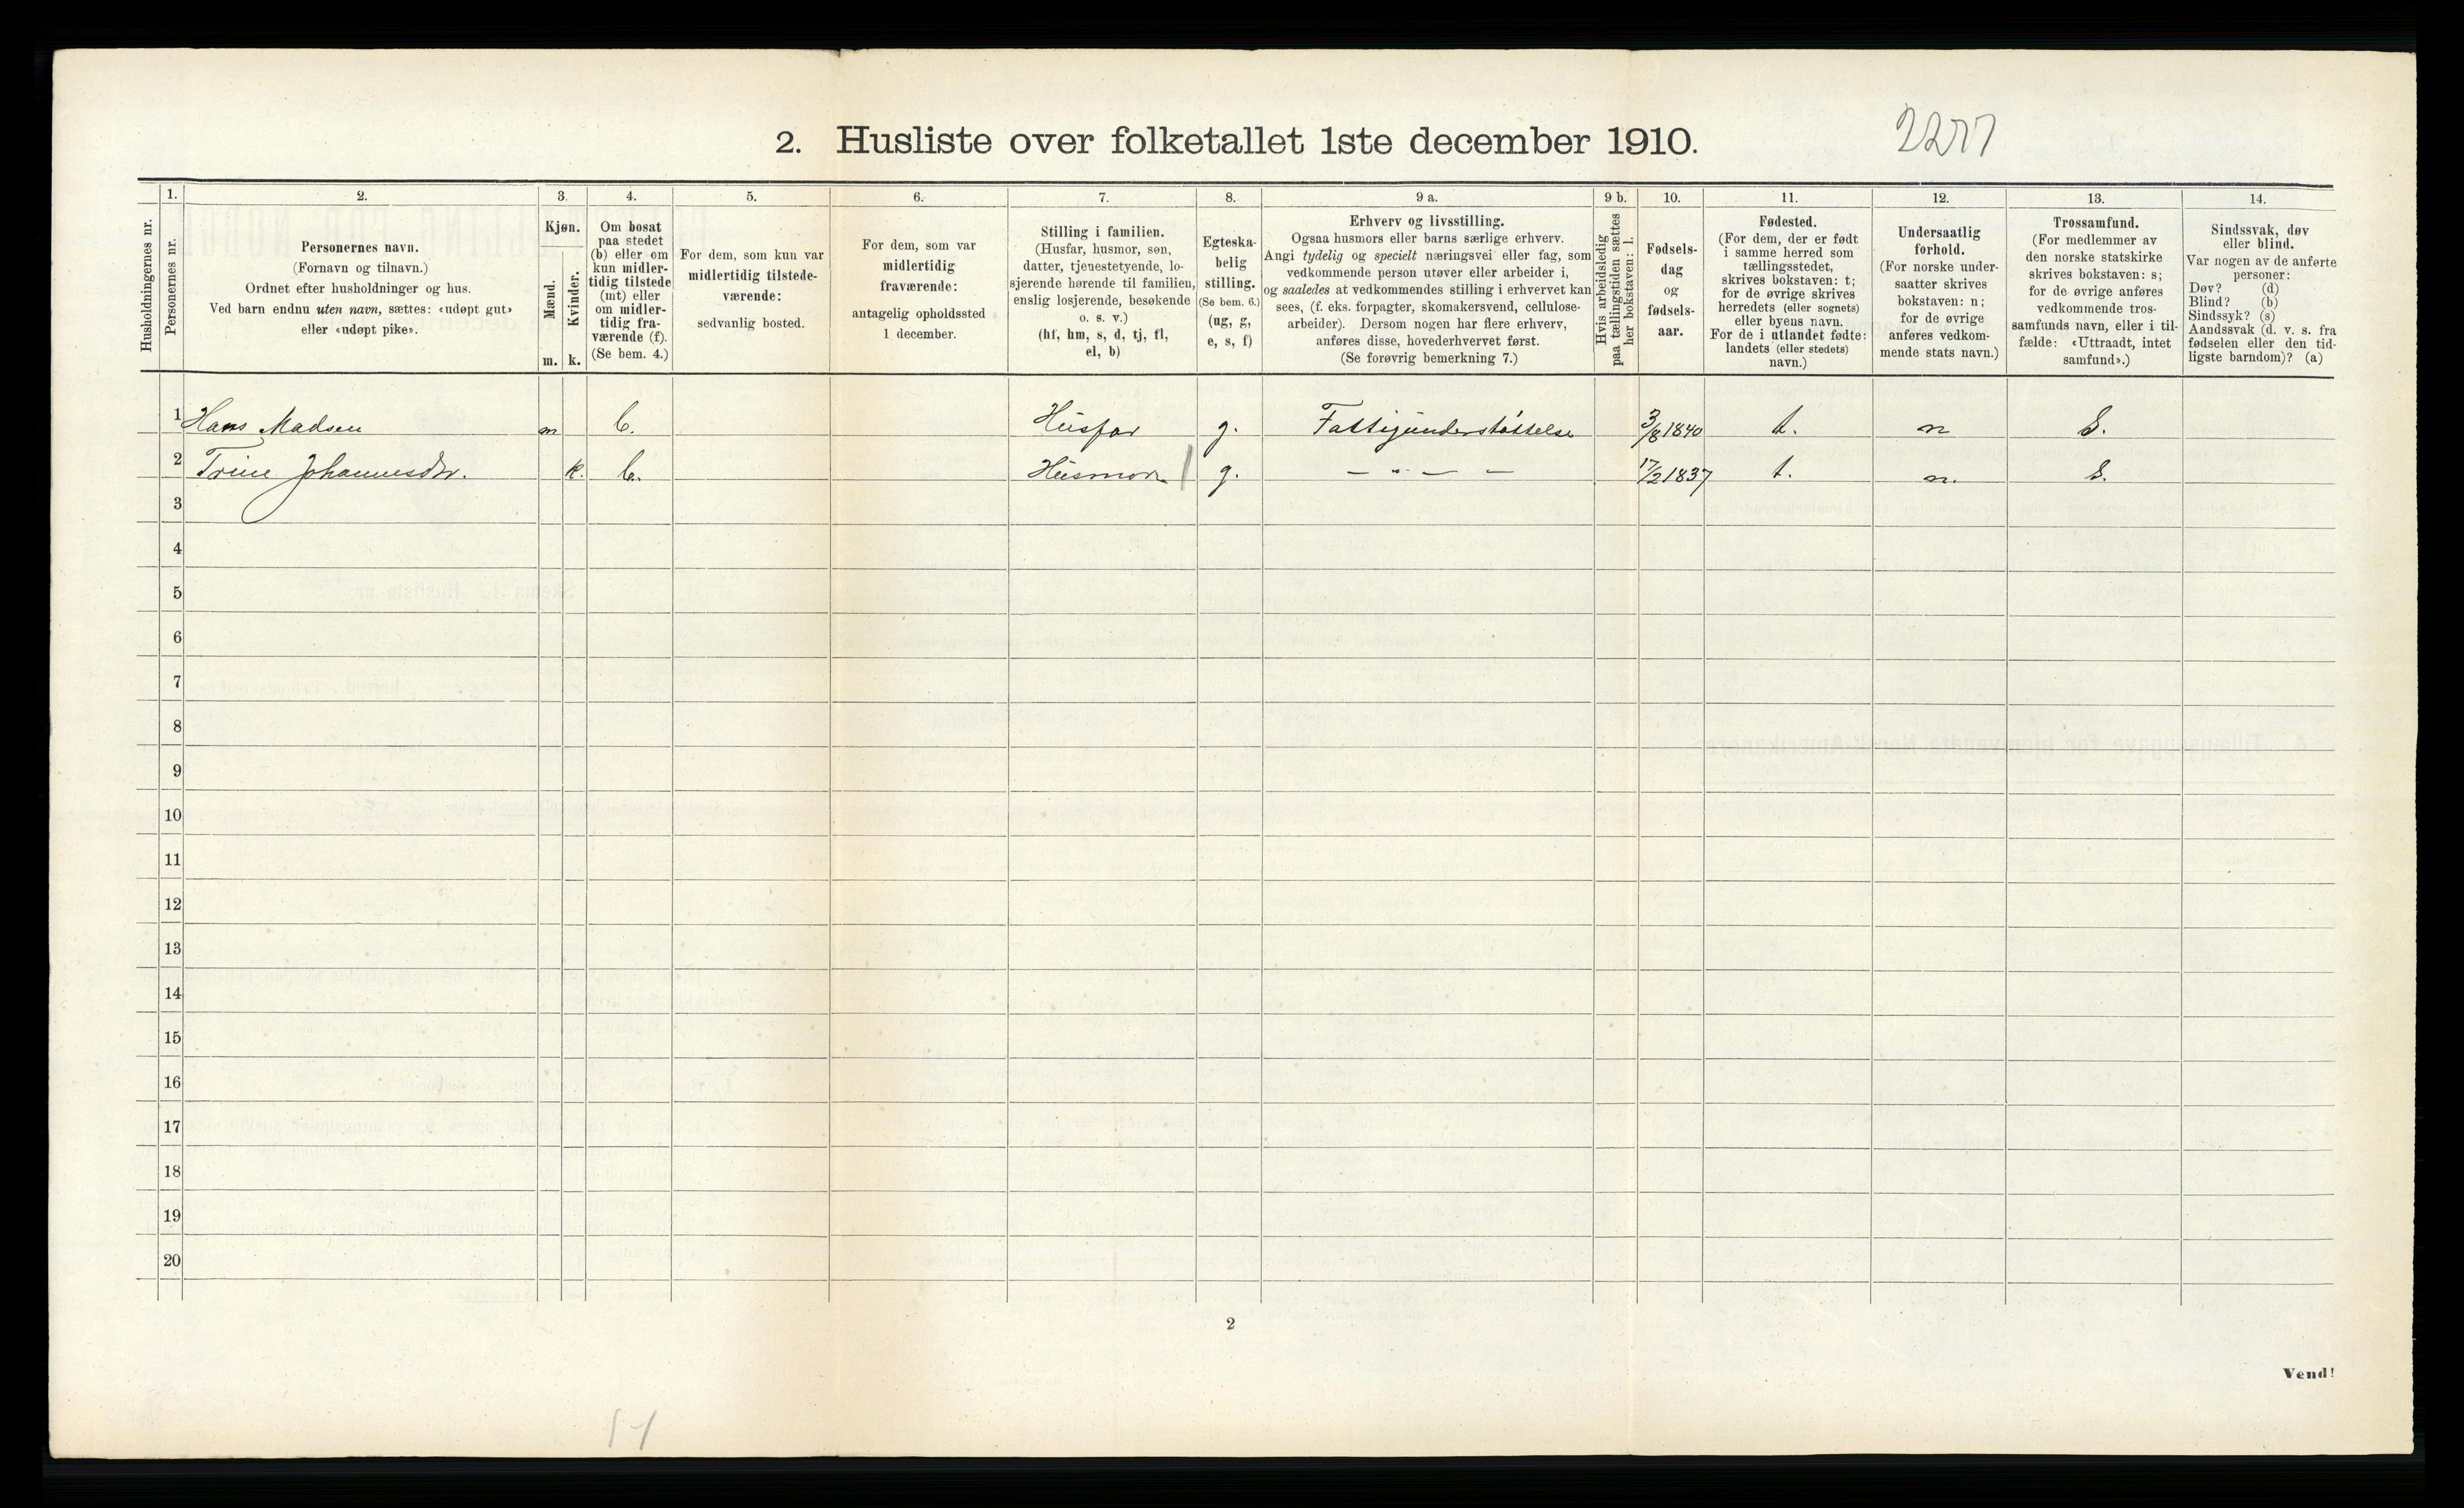 2. Husliste over folketallet 1ste december 1910.
2277
Husholdningernes nr.
1.
Personernes nr.
2.
Personernes navn.
(Fornavn og tilnavn.)
Ordnet efter husholdninger og hus.
Ved barn endnu uten navn, sættes: «udøpt gut»
eller «udøpt pike».
3.
Kjøn.
Mænd.
m.
Kvinder.
k.
4.
Om bosat
paa stedet
(b) eller om
kun midler-
tidig tilstede
(mt) eller
om midler-
tidig fra-
værende (f).
(Se bem. 4.)
5.
For dem, som kun var
midlertidig tilstede-
værende:
sedvanlig bosted.
6.
For dem, som var
midlertidig
fraværende:
antagelig opholdssted
1 december.
7.
Stilling i familien.
(Husfar, husmor, søn,
datter, tjenestetyende, lo-
sjerende hørende til familien,
enslig losjerende, besøkende
o. s. v.)
(hf, hm, s, d, tj, fl,
el, b)
8.
Egteska-
belig
stilling.
(Se bem. 6.)
(ug, g,
e, s, f)
9 a.
Erhverv og livsstilling.
Ogsaa husmors eller barns særlige erhverv.
Angi tydelig og specielt næringsvei eller fag, som
vedkommende person utøver eller arbeider i,
og saaledes at vedkommendes stilling i erhvervet kan
sees, (f. eks. forpagter, skomakersvend, cellulose-
arbeider). Dersom nogen har flere erhverv,
anføres disse, hovederhvervet først.
(Se forøvrig bemerkning 7.)
9 b.
Hvis arbeidsledig
paa tællingstiden sættes
her bokstaven: l.
10.
Fødsels-
dag
og
fødsels-
aar.
11.
Fødested.
(For dem, der er født
i samme herred som
tællingsstedet,
skrives bokstaven: t;
for de øvrige skrives
herredets (eller sognets)
eller byens navn.
For de i utlandet fødte:
landets (eller stedets)
navn.)
12.
Undersaatlig
forhold.
(For norske under-
saatter skrives
bokstaven: n;
for de øvrige
anføres vedkom-
mende stats navn.)
13.
Trossamfund.
(For medlemmer av
den norske statskirke
skrives bokstaven: s;
for de øvrige anføres
vedkommende tros-
samfunds navn, eller i til-
fælde: «Uttraadt, intet
samfund».)
14.
Sindssvak, døv
eller blind.
Var nogen av de anførte
personer:
Døv? (d)
Blind? (b)
Sindssyk? (s)
Aandssvak (d. v. s. fra
fødselen eller den tid-
ligste barndom)? (a)
1 Hans Madsen m b. Husfar g. Fattigunderstøttelse 3/8 1840 t. n S.
2 Trine Johannesdtr. k. b. Husmor g. — " — — 17/2 1837 t. n. S.
3
4
5
6
7
8
9
10
11
12
13
14
15
16
17
18
19
20
2
Vend!